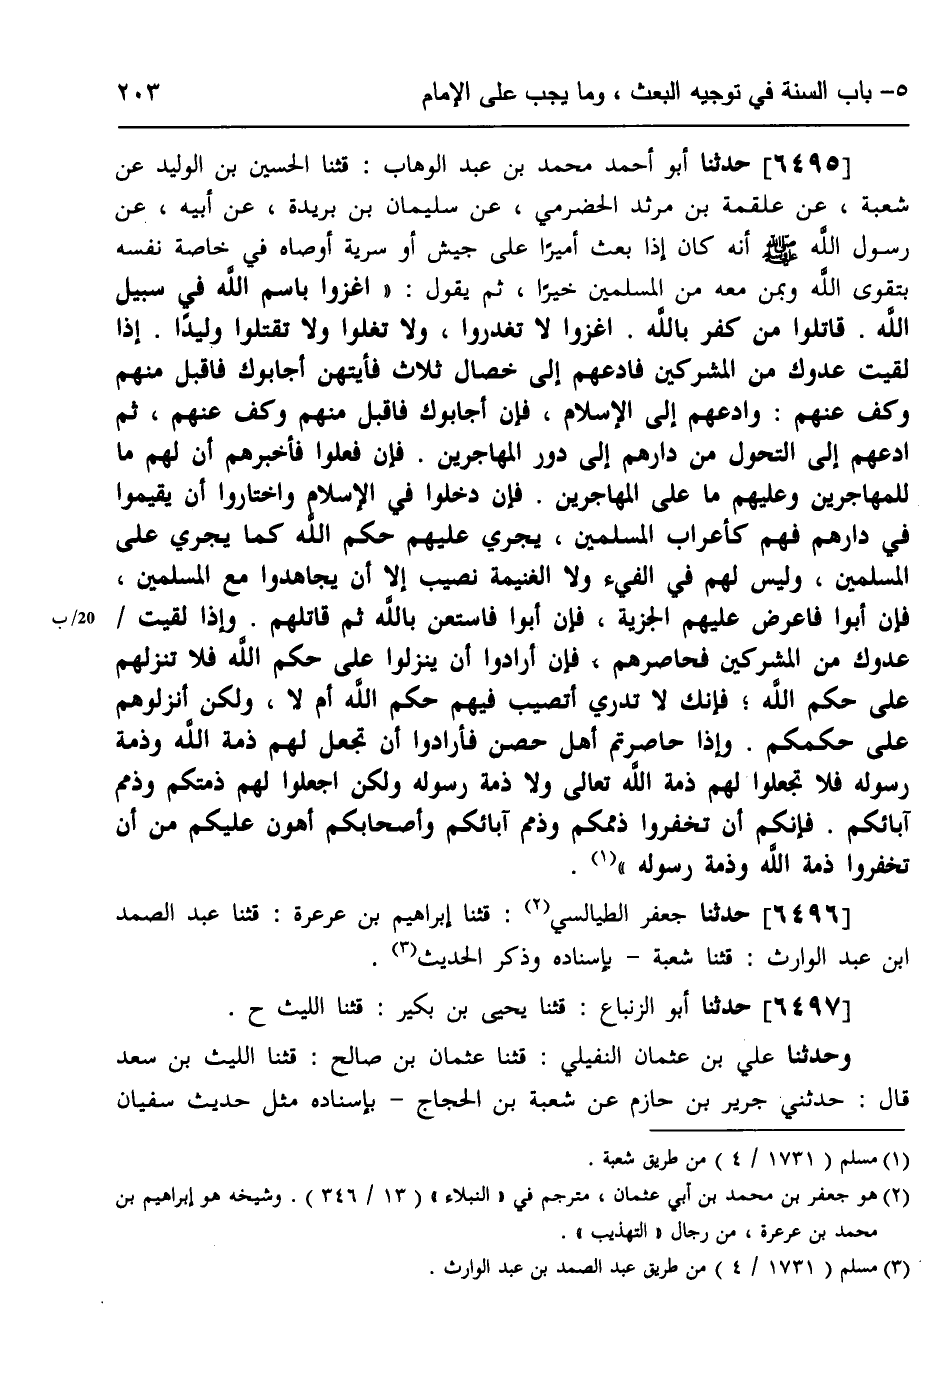 ٥- باب السنة في توجيه البعث ، وما يجب على الإمام ٢٠٣
[٦٤٩٥] حدثنا أبو أحمد محمد بن عبد الوهاب : قثنا الحسين بن الوليد عن
شعبة ، عن علقمة بن مرثد الحضرمي ، عن سليمان بن بريدة ، عن أبيه ، عن
رسول اللَّه ﷺ أنه كان إذا بعث أميرًا على جيش أو سرية أوصاه في خاصة نفسه
بتقوى اللَّه وبمن معه من المسلمين خيرًا ، ثم يقول : « اغزوا باسم اللَّه في سبيل
اللَّه . قاتلوا من كفر باللَّه . اغزوا لا تغدروا ، ولا تغلوا ولا تقتلوا وليدًا . إذا
لقيت عدوك من المشركين فادعهم إلى خصال ثلاث فأيتهن أجابوك فاقبل منهم
وكف عنهم : وادعهم إلى الإسلام ، فإن أجابوك فاقبل منهم وكف عنهم ، ثم
ادعهم إلى التحول من دارهم إلى دور المهاجرين . فإن فعلوا فأخبرهم أن لهم ما
للمهاجرين وعليهم ما على المهاجرين . فإن دخلوا في الإسلام واختاروا أن يقيموا
في دارهم فهم كأعراب المسلمين ، يجري عليهم حكم اللَّه كما يجري على
المسلمين ، وليس لهم في الفيء ولا الغنيمة نصيب إلا أن يجاهدوا مع المسلمين ،
فإن أبوا فاعرض عليهم الجزية ، فإن أبوا فاستعن باللَّه ثم قاتلهم . وإذا لقيت / 20/ب
عدوك من المشركين فحاصرهم ، فإن أرادوا أن ينزلوا على حكم اللَّه فلا تنزلهم
على حكم اللَّه ؛ فإنك لا تدري أتصيب فيهم حكم اللَّه أم لا ، ولكن أنزلوهم
على حكمكم . وإذا حاصرتم أهل حصن فأرادوا أن تجعل لهم ذمة اللَّه وذمة
رسوله فلا تجعلوا لهم ذمة اللَّه تعالى ولا ذمة رسوله ولكن اجعلوا لهم ذمتكم وذمم
آبائكم . فإنكم أن تخفروا ذممكم وذمم آبائكم وأصحابكم أهون عليكم من أن
تخفروا ذمة اللَّه وذمة رسوله »(١) .
[٦٤٩٦] حدثنا جعفر الطيالسي(٢) : قثنا إبراهيم بن عرعرة : قثنا عبد الصمد
ابن عبد الوارث : قثنا شعبة – بإسناده وذكر الحديث(٣) .
[٦٤٩٧] حدثنا أبو الزنباع : قثنا يحيى بن بكير : قثنا الليث ح .
وحدثنا علي بن عثمان النفيلي : قثنا عثمان بن صالح : قثنا الليث بن سعد
قال : حدثني جرير بن حازم عن شعبة بن الحجاج – بإسناده مثل حديث سفيان
(١) مسلم ( ١٧٣١ / ٤ ) من طريق شعبة .
(٢) هو جعفر بن محمد بن أبي عثمان ، مترجم في « النبلاء » ( ١٣ / ٣٤٦ ) . وشيخه هو إبراهيم بن
محمد بن عرعرة ، من رجال « التهذيب » .
(٣) مسلم ( ١٧٣١ / ٤ ) من طريق عبد الصمد بن عبد الوارث .